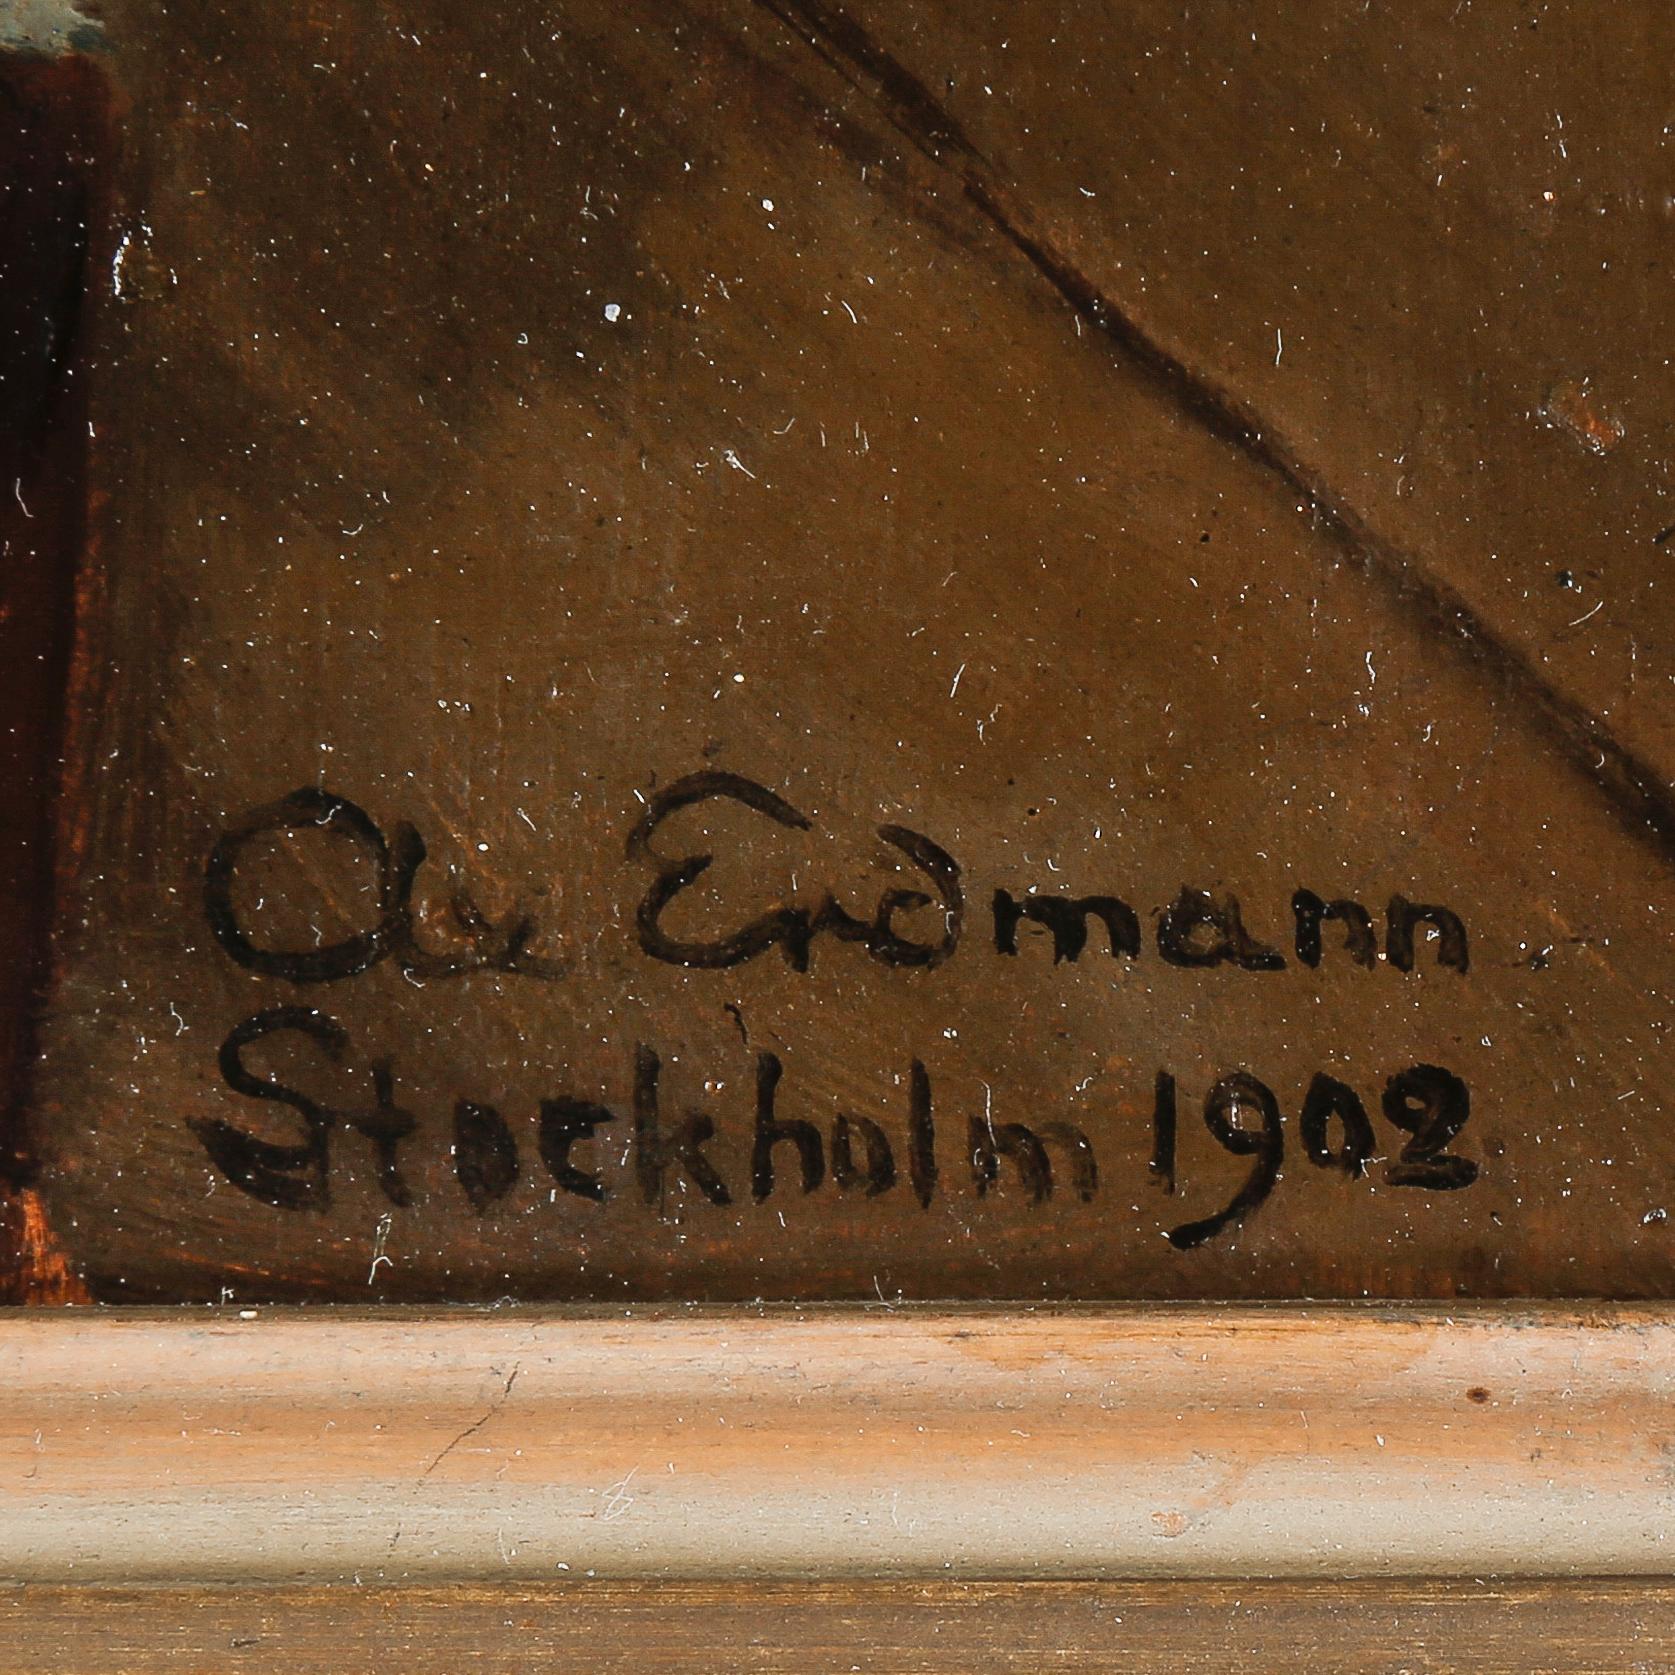 Ax Erdmann
Stockholm 1902